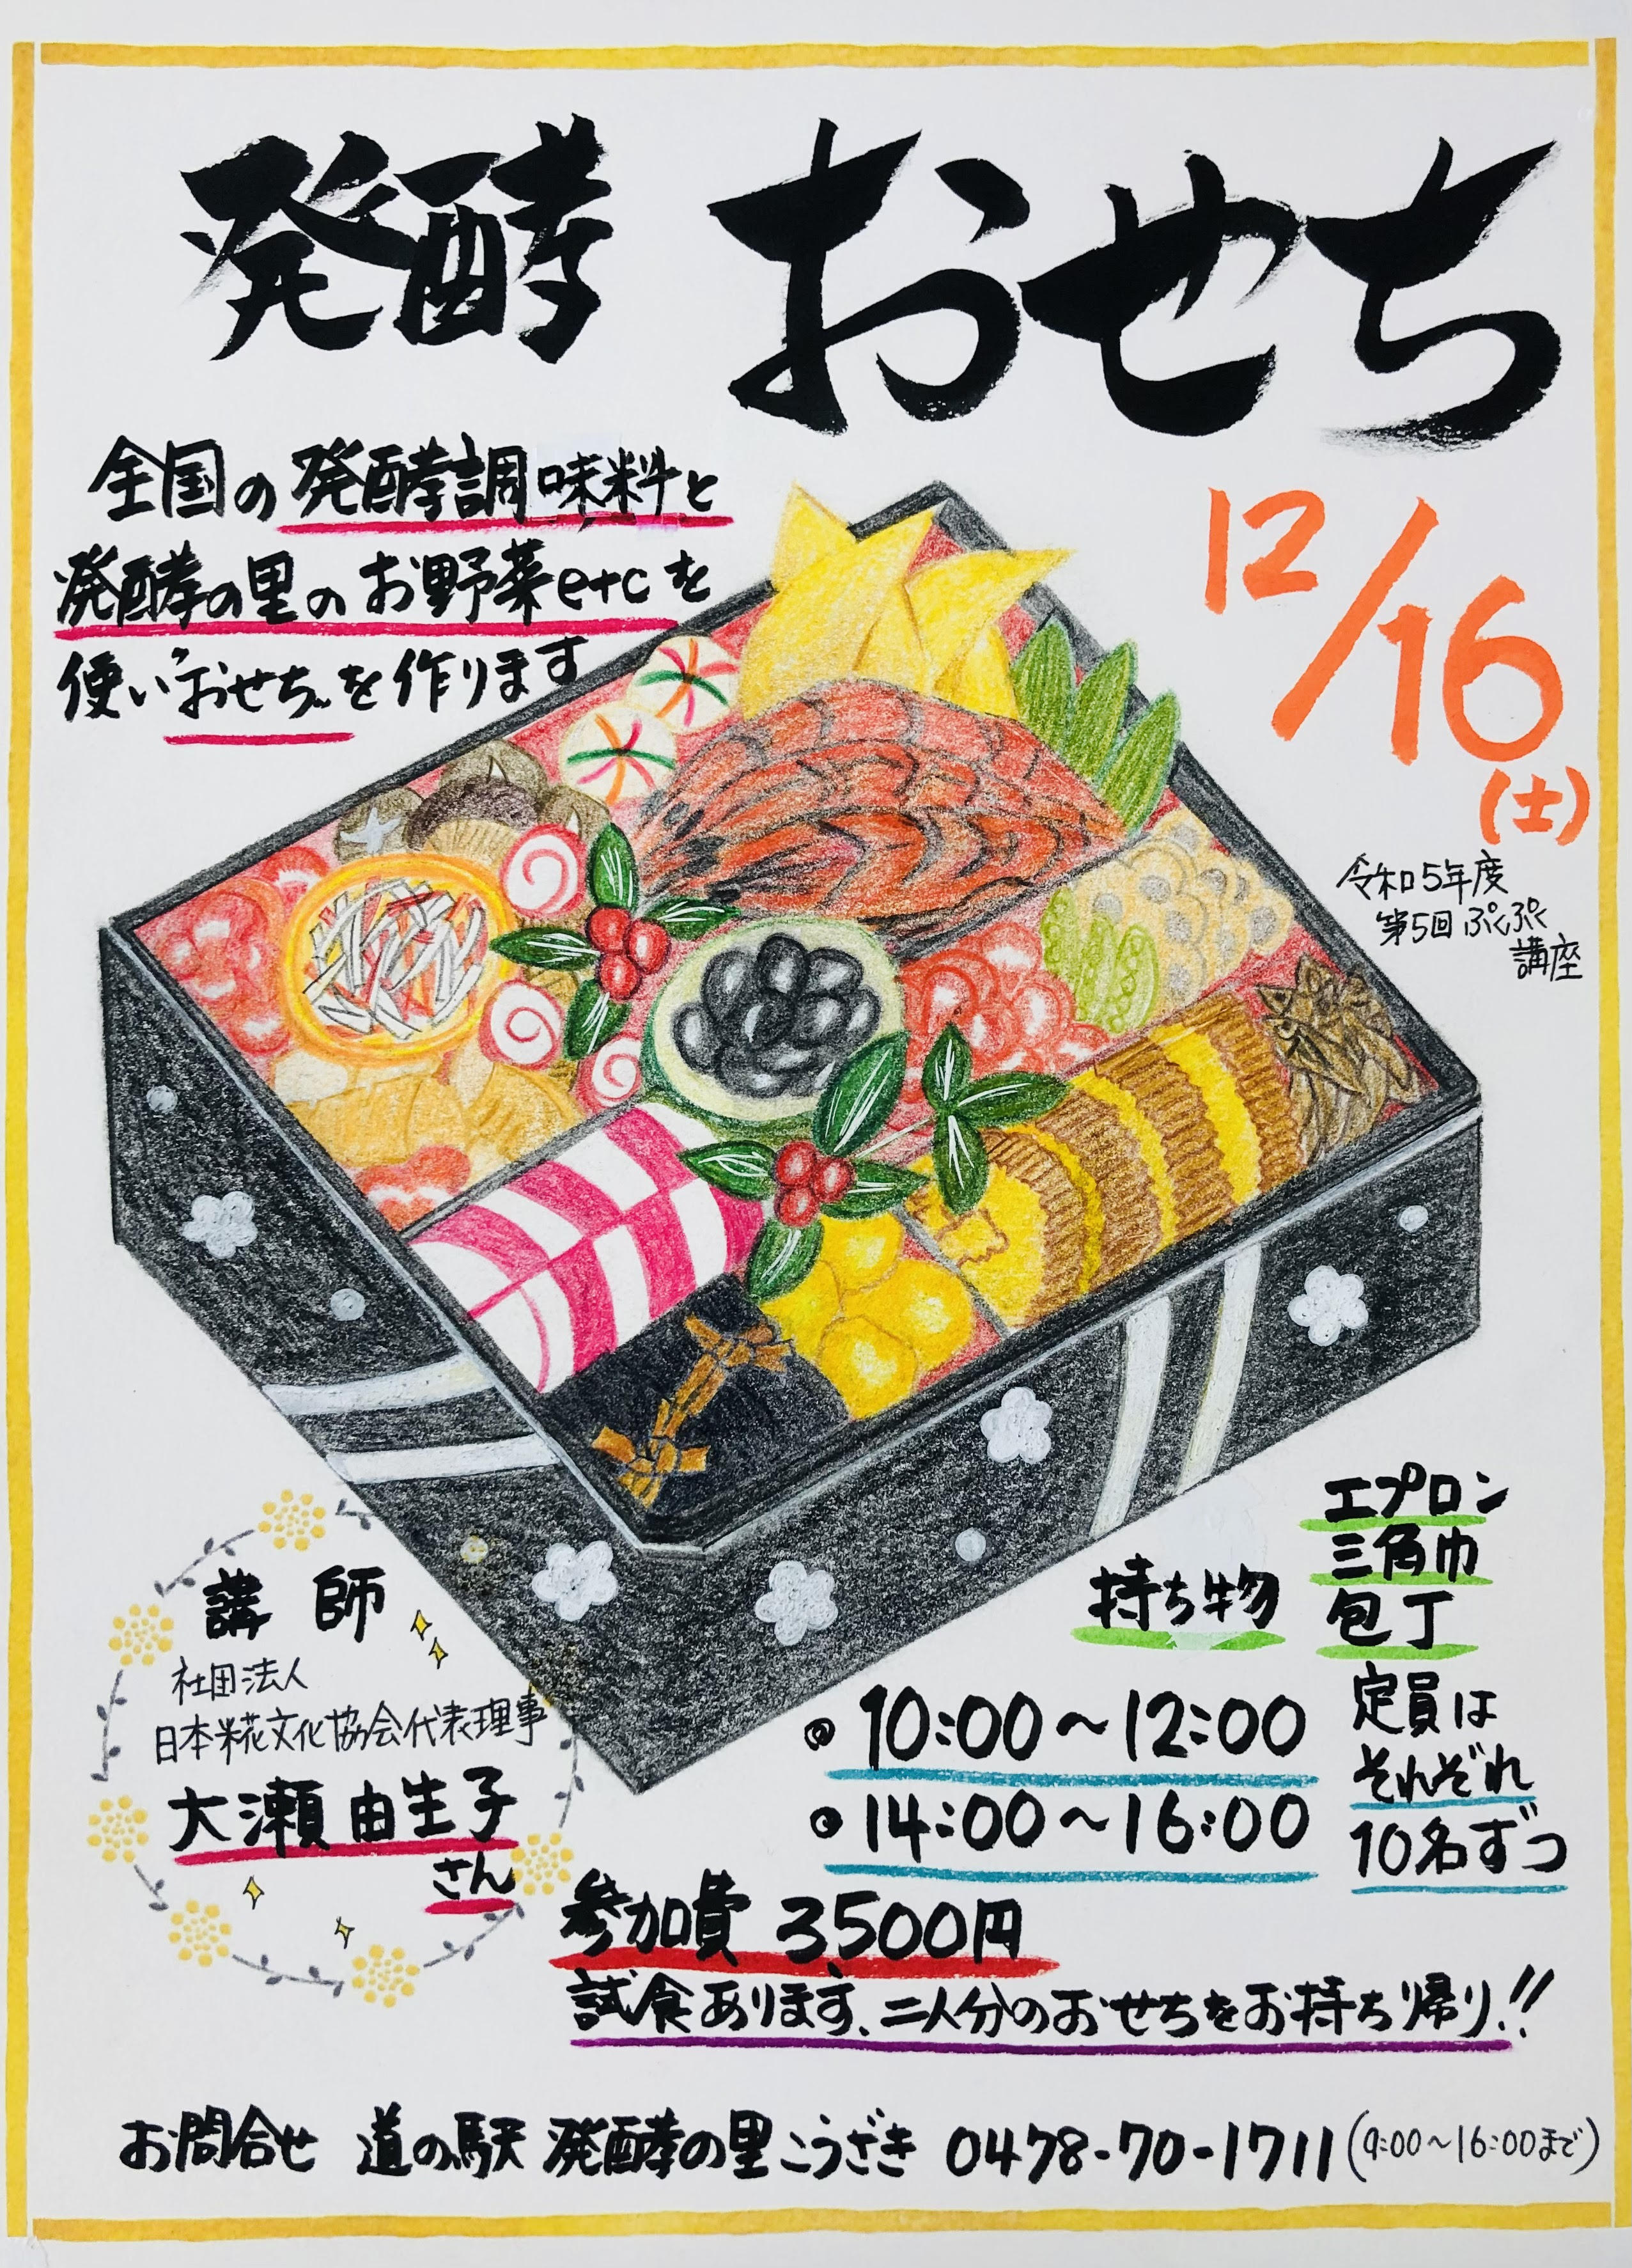 発酵 おせち
全国の発酵調味料と
発酵の里のお野菜etcを
使い"おせち"を作ります
12/16
(土)
令和5年度
第5回 ぷくぷく
講座
講師
社団法人
日本糀文化協会代表理事
大瀬由生子
さん
持ち物
エプロン
三角巾
包丁
◎10:00～12:00
◎14:00～16:00
定員は
それぞれ
10名ずつ
参加費 3,500円
試食あります、二人分のおせちをお持ち帰り!!
お問合せ 道の駅 発酵の里こうざき 0478-70-1711(9:00～16:00まで)